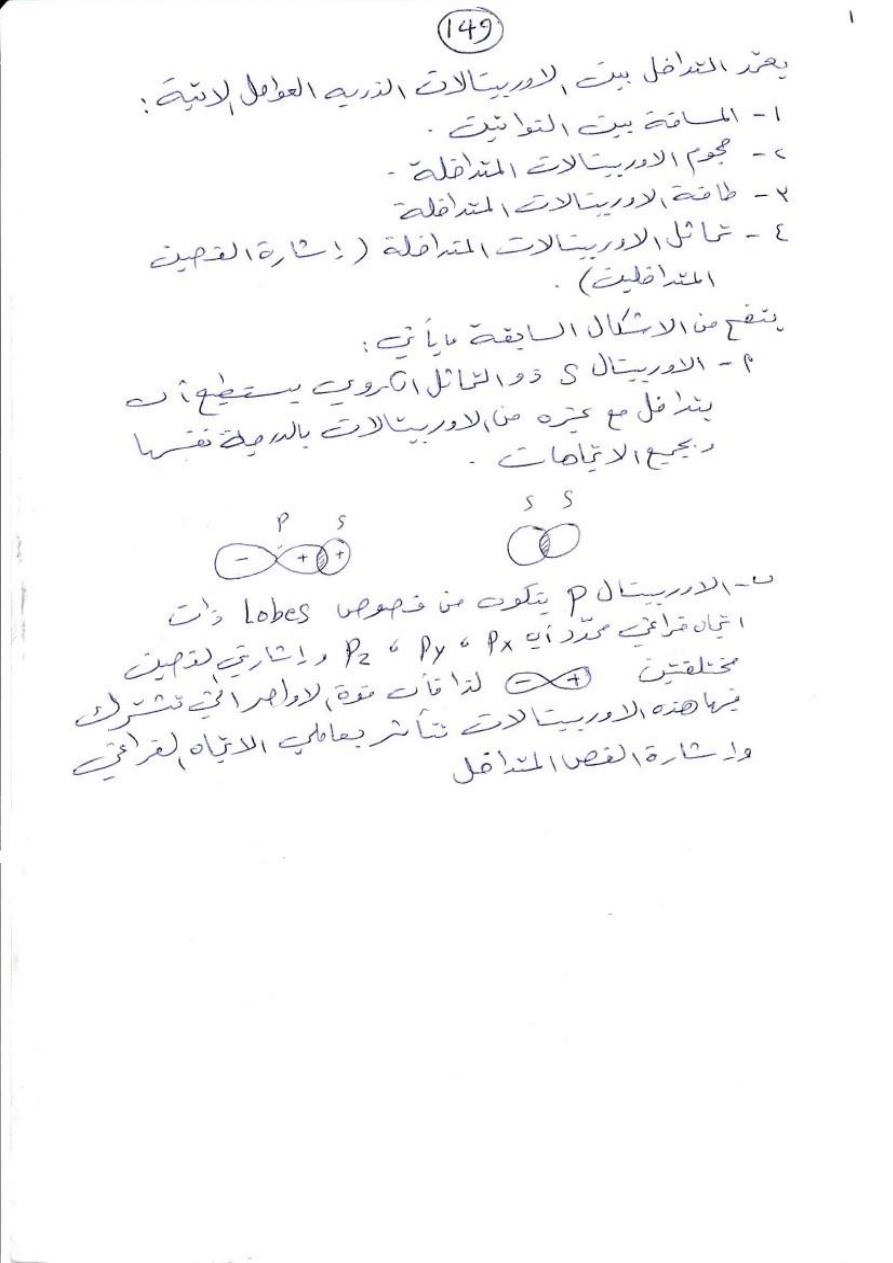 149
١
يعتمد التداخل بين الاوربيتالات الذريه العوامل الاتية :
١- المسافة بين النواتين .
٢- حجوم الاوربيتالات المتداخلة .
٣- طاقة الاوربيتالات المتداخلة
٤- تماثل الاوربيتالات المتداخلة ( إشارة الفصين
المتداخلين) .
يتضح من الاشكال السابقة مايأتي :
أ- الاوربيتال S ذو التماثل الكروي يستطيع أن
يتداخل مع غيره من الاوربيتالات بالدرجة نفسها
وبجميع الاتجاهات .
S S
P S
- + +
ب- الاوربيتال P يتكون من فصوص Lobes ذات
اتجاه فراغي محدد أي Px ، Py ، Pz وإشارتي الفصين
مختلفتين - + لذا فأن قوة الاواصر التي تشترك
فيها هذه الاوربيتالات تتأثر بعاملي الاتجاه الفراغي
وإشارة الفص المتداخل